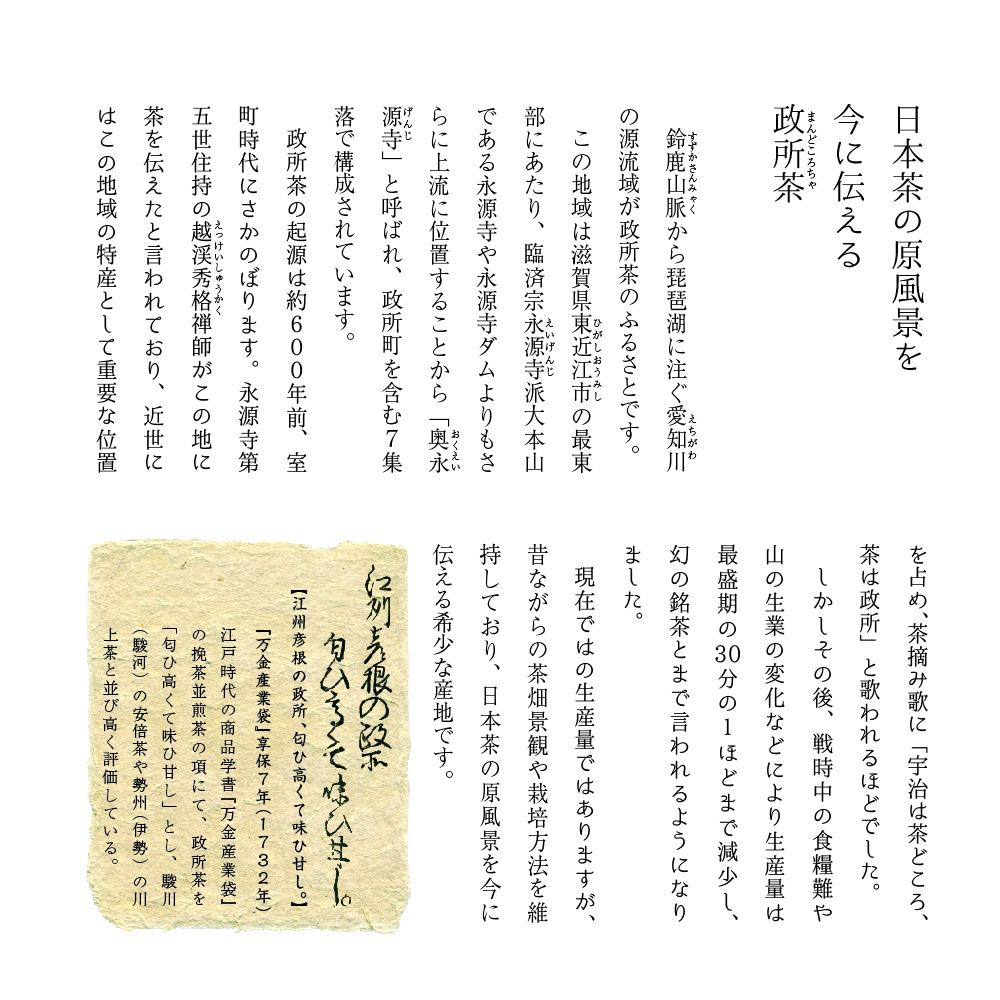 日本茶の原風景を
今に伝える
政所茶
まんどころちゃ
鈴鹿山脈から琵琶湖に注ぐ愛知川
すずかさんみゃく
えちがわ
の源流域が政所茶のふるさとです。
この地域は滋賀県東近江市の最東
ひがしおうみし
部にあたり、臨済宗永源寺派大本山
えいげんじ
である永源寺や永源寺ダムよりもさ
らに上流に位置することから「奥永
おくえい
源寺」と呼ばれ、政所町を含む7集
げんじ
落で構成されています。
政所茶の起源は約600年前、室
町時代にさかのぼります。永源寺第
五世住持の越渓秀格禅師がこの地に
えっけいしゅうかく
茶を伝えたと言われており、近世に
はこの地域の特産として重要な位置
を占め、茶摘み歌に「宇治は茶どころ、
茶は政所」と歌われるほどでした。
しかしその後、戦時中の食糧難や
山の生業の変化などにより生産量は
最盛期の30分の1ほどまで減少し、
幻の銘茶とまで言われるようになり
ました。
現在ではの生産量ではありますが、
昔ながらの茶畑景観や栽培方法を維
持しており、日本茶の原風景を今に
伝える希少な産地です。
江州彦根の政所
匂ひ高くて味ひ甘し。
【江州彦根の政所、匂ひ高くて味ひ甘し。】
『万金産業袋』享保7年(1732年)
江戸時代の商品学書『万金産業袋』
の挽茶並煎茶の項にて、政所茶を
「匂ひ高くて味ひ甘し」とし、駿川
(駿河)の安倍茶や勢州(伊勢)の川
上茶と並び高く評価している。